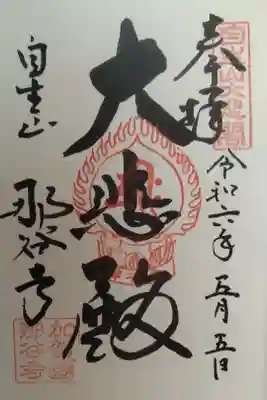 奉拝
令和六年 五月五日
大悲殿
自生山
那谷寺